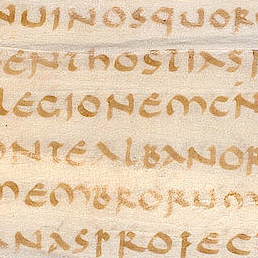 NUINOSQUOR
ENTHOSTIAS
LEGIONEMCN
ONTEALBANOR
MEMBRORUM
ANASPROFEC